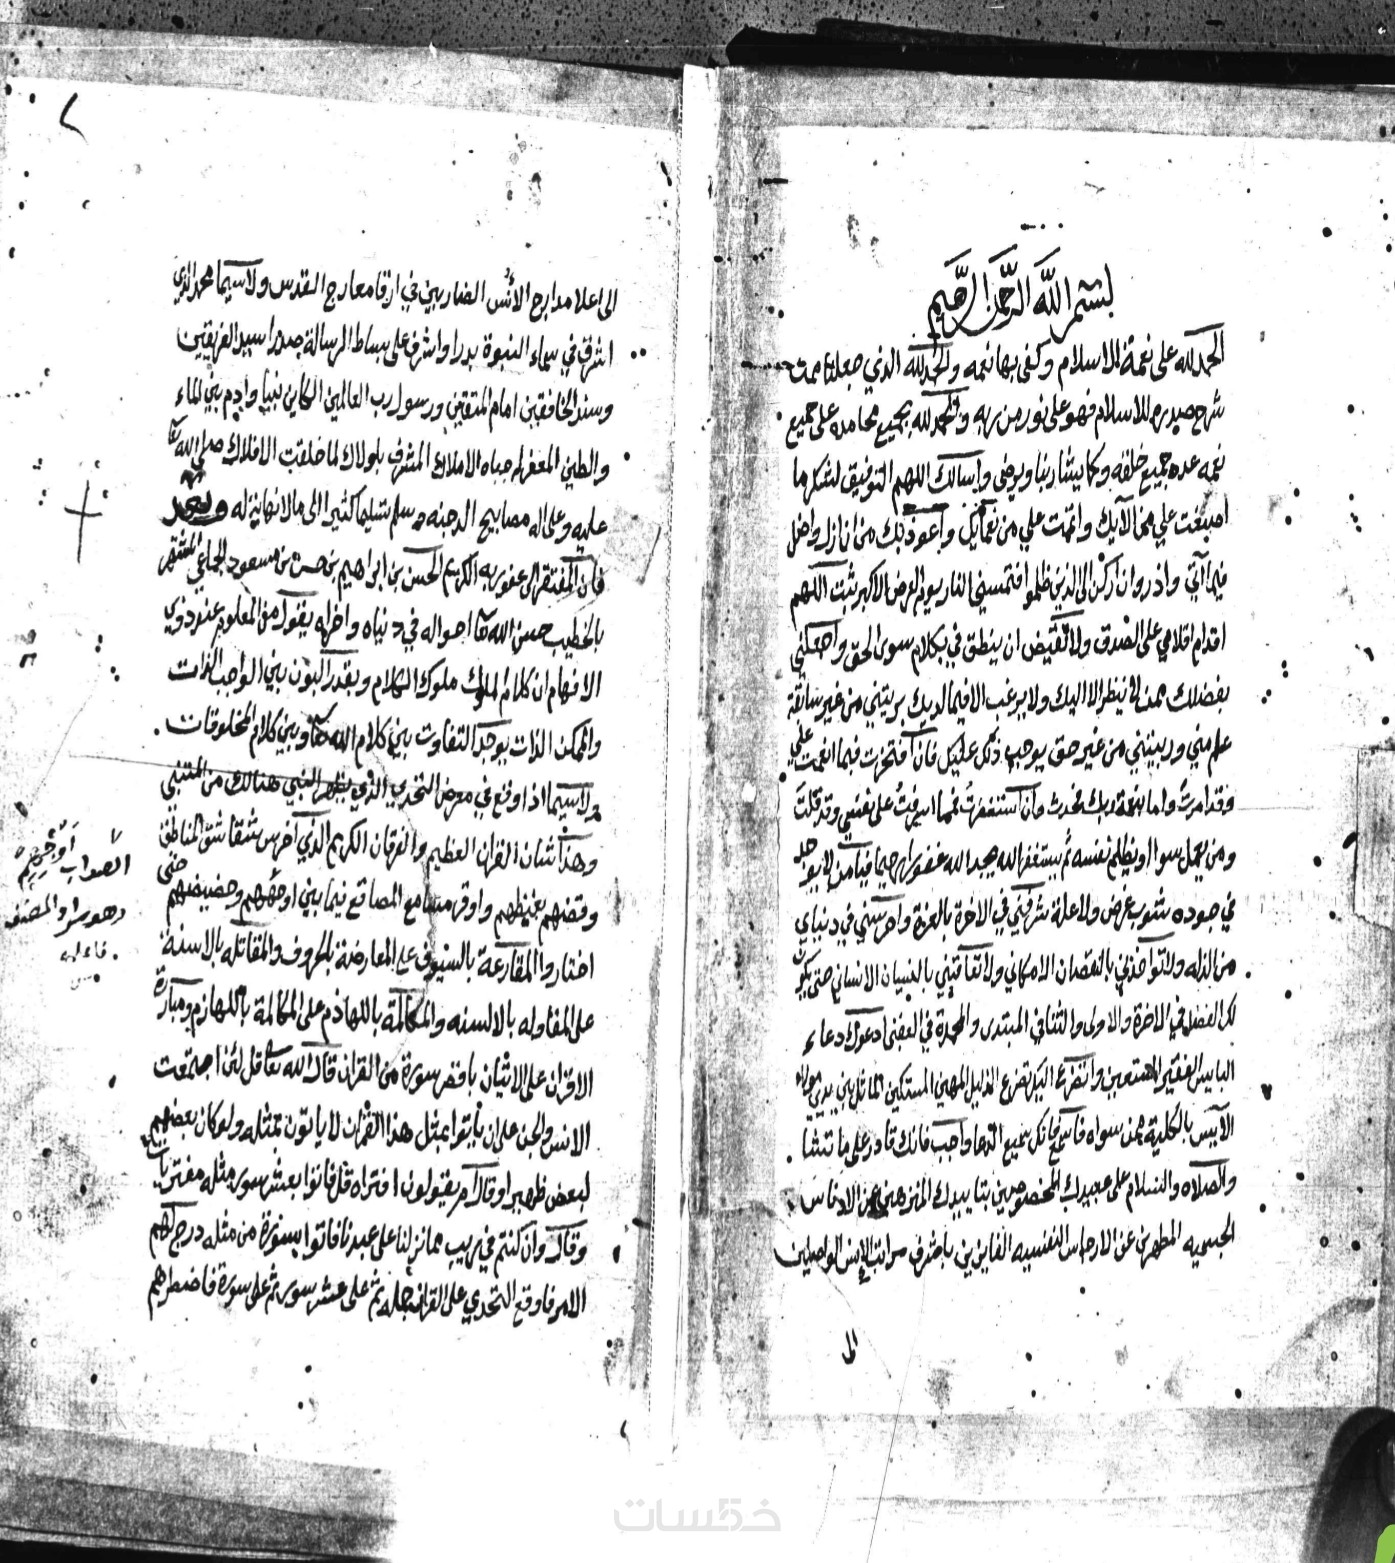 بسم الله الرحمن الرحيم
الحمد لله على نعمة الاسلام وكفى بها نعمه والحمد لله الذي جعلنا ممن
شرح صدره للاسلام فهو على نور من ربه والحمد لله بجميع محامده على جميع
نعمه عدد جميع خلقه وكما يشا ربنا ويرضى واسالك اللهم التوفيق لشكر ما
اسبغت علي من الآيك واتممت علي من نعمايك واعوذ بك من ان ازل واضل
فيما آتي واذر وان اركن الى الذين ظلموا فتمسني النار يوم العرض الاكبر ثبت اللهم
اقدام اقلامي على الصدق ولا تقيض ان ينطق في بكلام سوى الحق واجعلني
بفضلك ممن لا ينظر الا اليك ولا يرغب الا فيما لديك بريتني من غير سابقة
علم مني وربيتني من غير حق يوجب ذلك عليك فان افتخرت فبما انعمت علي
وقد امرت واما بنعمة ربك فحدث وان استغفرت فمما اسرفت على نفسي وقد قلت
ومن يعمل سوا او يظلم نفسه ثم يستغفر الله يجد الله غفورا رحيما فيا من لا يوجد
في جوده شوب غرض ولا علة شرفني في الاخرة بالعزة واحرسني في دنياي
من الزله ولا تواخذني بالنقصان الامكاني ولا تعاقبني بالنسيان الانساني حتى يكون
لك الفضل في الاخرة والاولى والثنا في المبتدى والمحمدة في العقبى ادعوك دعاء
البايس الفقير المستعين واتضرع اليك تضرع الذليل المهين المستكين الماثل بين يدي مولاه
الآيس بالكلية ممن سواه فاسمع فانك سميع الدعا واجب فانك قادر على ما تشا
والصلاه والسلام على عبيدك المخصوصين بتاييدك المنزهين عن الادناس
الجسميه المطهرين عن الارجاس النفسيه الفايزين باشرف مراتب الانس الواصلين
الى
الى اعلا مدارج الانس الضاربين في ارقا معارج القدس ولاسيما محمد الذي
اشرق في سماء النبوة بدرا واشرف على بساط الرسالة صدرا سيد الفريقين
وسند الخافقين امام المتقين ورسول رب العالمين الكاين نبيا وادم بين الماء
والطين المعفر له جباه الاملاك المشرف بلولاك لما خلقت الافلاك صلى الله تعا
عليه وعلى اله مصابيح الدجنه وسلم تسليما كثيرا الى ما لا نهاية له وبعد
فان المفتقر الى عفو ربه الكريم الحسن بن ابراهيم بن حسن بن مسعود المشتهر
بالخطيب حسن الله تعا احواله في دنياه واخراه يقول من المعلوم عند ذوي
الافهام ان كلام الملوك ملوك الكلام وبقدر البون بين الواجب الذات
والممكن الذات يوجد التفاوت بين كلام الله تعا وبين كلام المخلوقات
ولاسيما اذا وقع في معرض التحدي الذي يظهر النبي هنالك من المتنبي
وهذا شان القران العظيم والفرقان الكريم الذي اخرس شقاشق المناطق
وقضهم بقضيضهم واوقر مسامع المصاقع فيما بين اوجههم وحضيضهم حتى
اختاروا المقارعة بالسيوف على المعارضة بالحروف والمقاتله بالاسنة
على المقاوله بالالسنه والمكالمة باللهاذم على المكالمة باللهازم ومبارزة
الاقران على الاتيان باقصر سورة من القران قال الله تعا قل لئن اجتمعت
الانس والجن على ان ياتوا بمثل هذا القران لا ياتون بمثله ولو كان بعضهم
لبعض ظهيرا وقال ام يقولون افتراه قل فاتوا بعشر سور مثله مفتريات
وقال وان كنتم في ريب مما نزلنا على عبدنا فاتوا بسورة من مثله درج لهم
الامر فاوقع التحدي على القران جمله ثم على عشر سور ثم على سورة فاضطرهم
الصواب اوجهم
خمسات